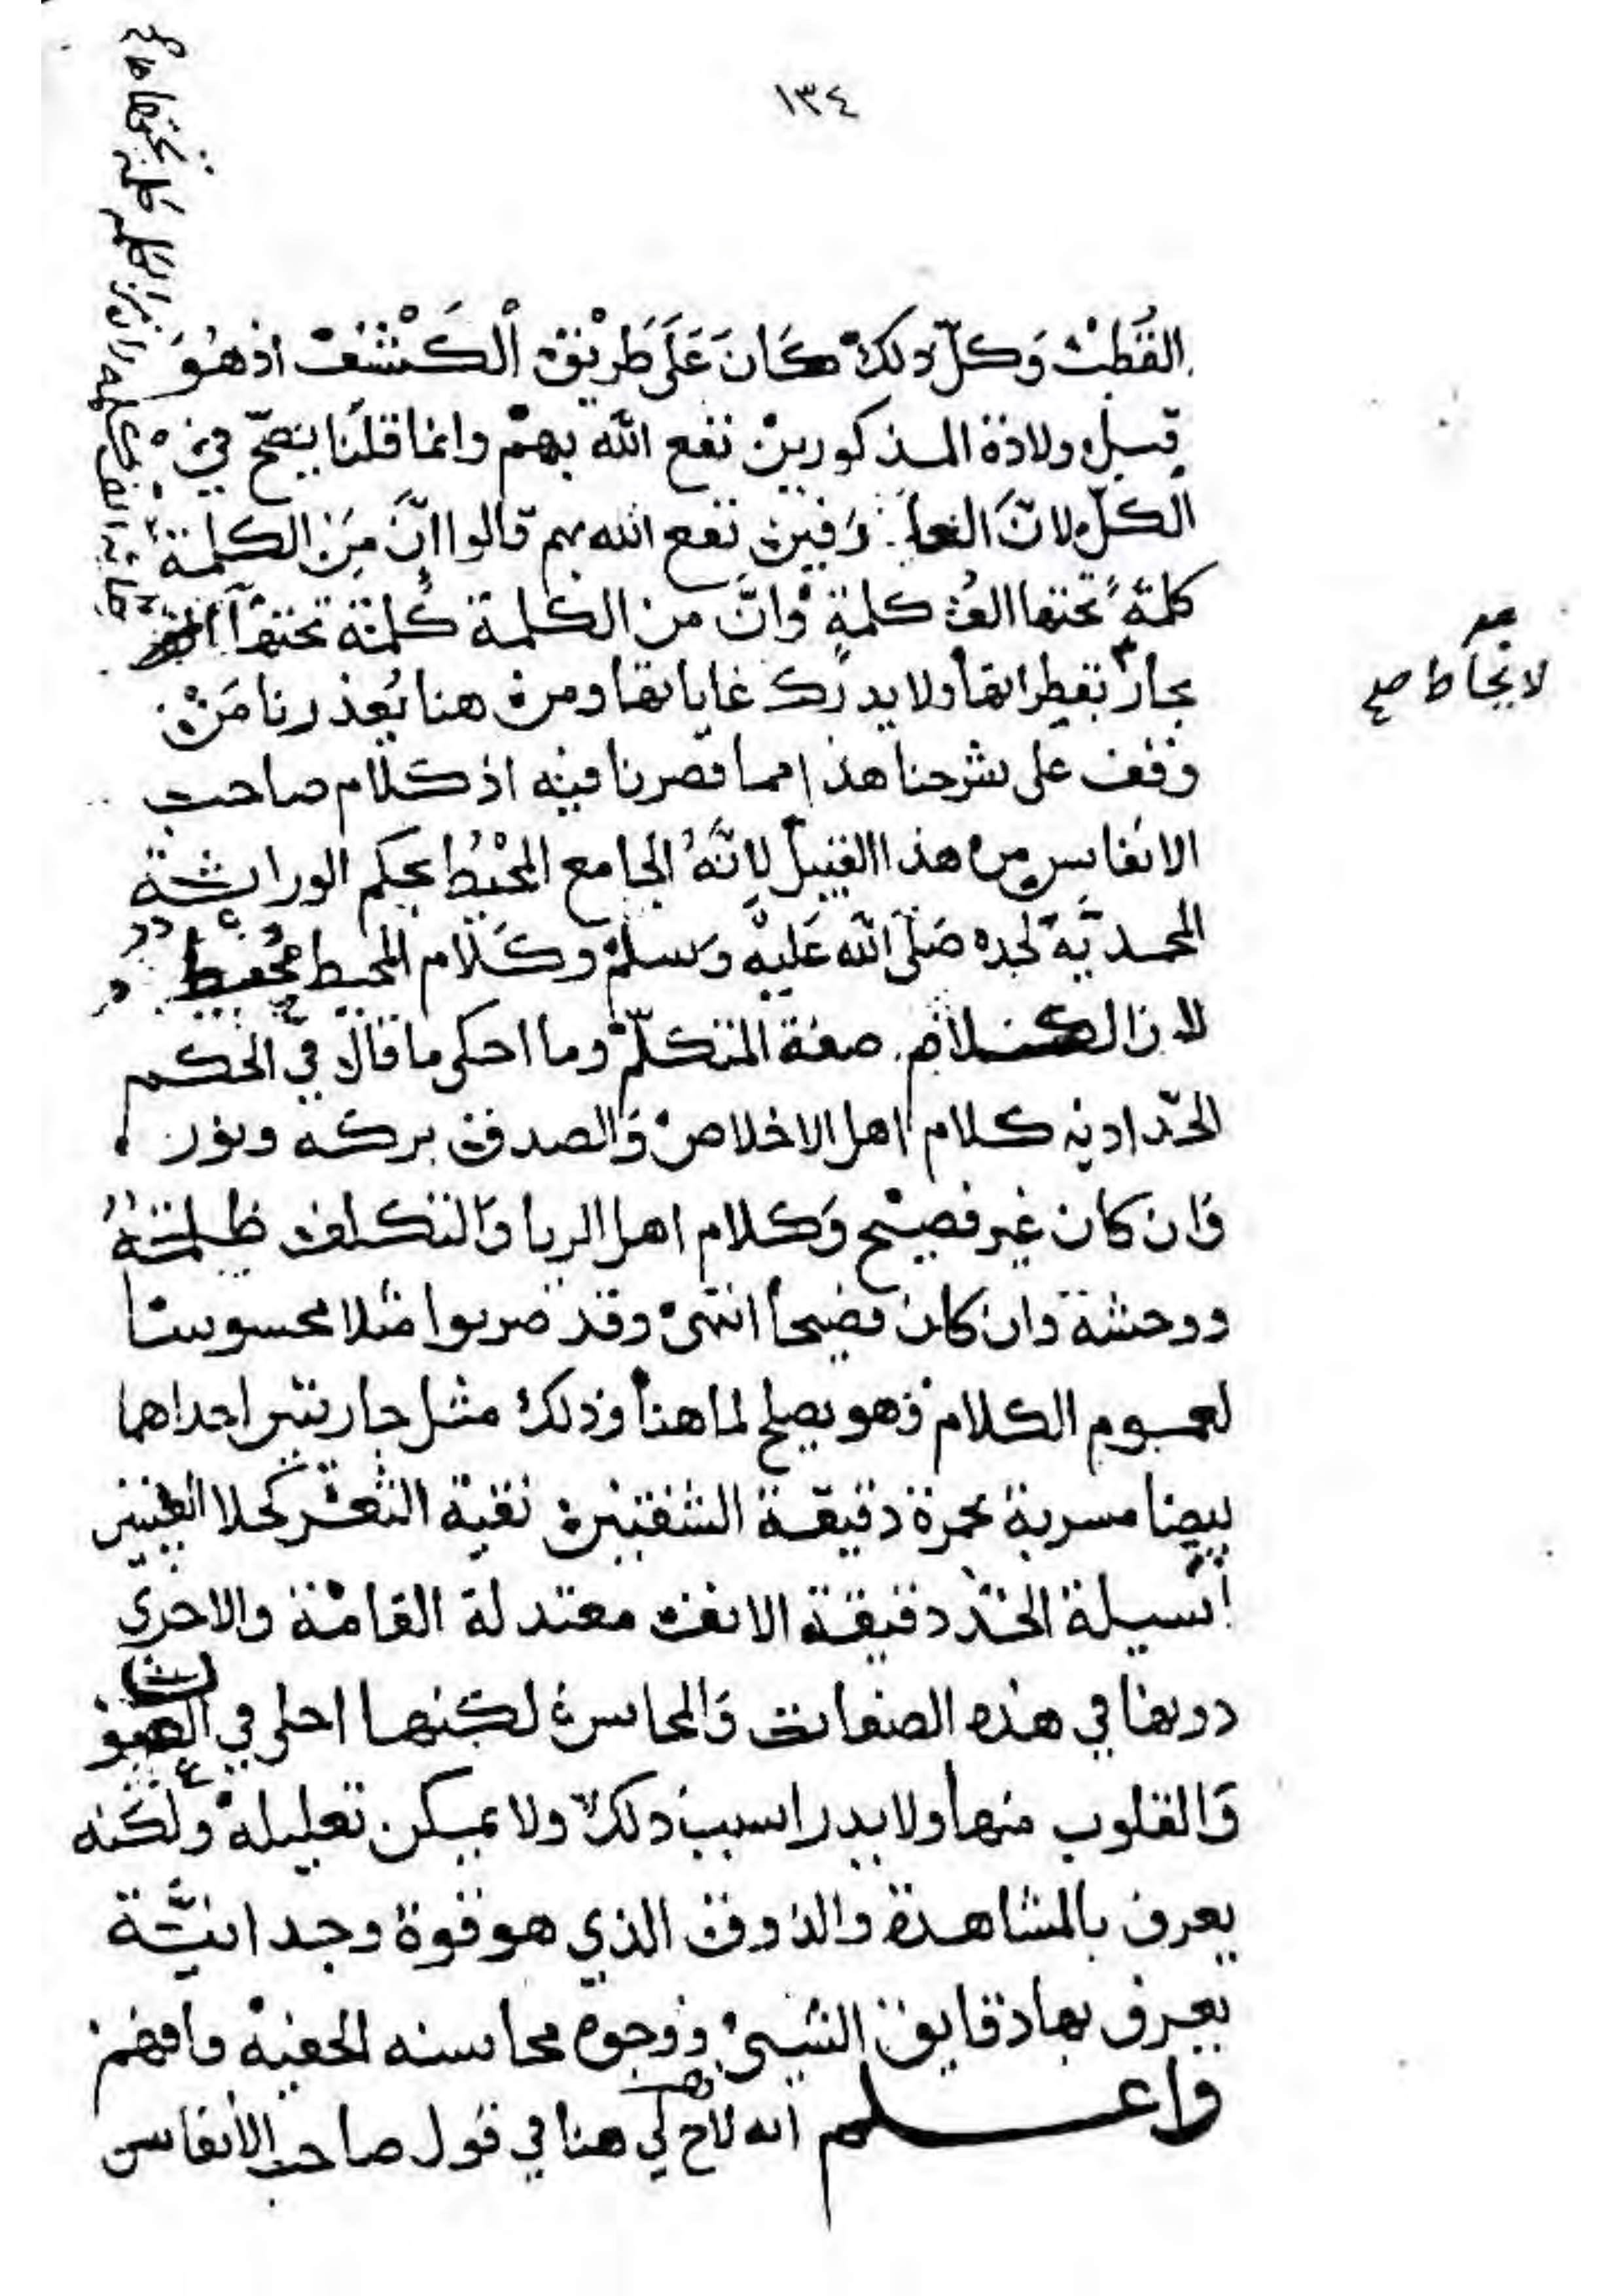 ١٣٤
القُطبْ وَكلّ ذلكْ كَانَ عَلَى طَرِيْق الْكَشْفْ اذهُوَ
قبل ولادة المذكورين نفع الله بهمْ وانما قلنا يصحّ في
الكلّ لانّ العارفين نفع الله بهم قالوا انَّ مِنَ الكلمة
كلمةً تحتها الف كلمةٍ وانَّ من الكلمة كلمة تحتها
بحار بقطراتها ولا يدرك غاياتها ومن هنا يُعذرنا مَنْ
وقف على شرحنا هذا مما قصرنا فيه اذ كلام صاحب
الانفاس من هذا القبيل لانَّهُ الجامع المحْيط بحكم الوراثة
المحمديَّة لجده صَلَّى الله عَليْه وَسلمْ وكَلام المحيط محيط
لان الكلام صفة المتكلّم وما احكى ما قال في الحكم
الحدّاديه كلام اهل الاخلاص وَالصدق بركه ونور
وَان كان غير فصيْح وَكلام اهل الريا وَالتكلف ظلمةُ
ووحشة وان كان فصيحاً انتهى وقد ضربوا مثلا محسوسًا
لعموم الكلام فهو يصلح لما هنا وذلك مثل جاريتين احداهما
بيضا مسربة بحمرة دقيقة الشفتين نقية الثغر كحلا العينين
أسيلة الخدّ دقيقة الانف معتدلة القامة والاخرى
دونها في هذه الصفات وَالمحاسن لكنها احلى في العيون
وَالقلوب منها ولا يدرا سبب ذلك ولا يمكن تعليله ولكنه
يعرف بالمشاهدة والذوق الذي هو قوة وجدانيَّة
يعرف بها دقايق الشيئ ووجوه محاسنه الخفيه فافهم
واعلم انه لاح لي هنا في قول صاحب الأنفاس
لا يحاط صح